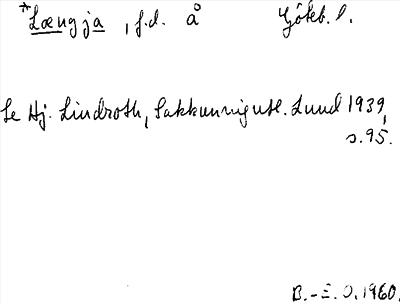 *Længja, f.d. å Göteb. l.
Se Hj. Lindroth, Sakkunnigutl. Lund 1939,
s.95.
B.-E. O. 1960.